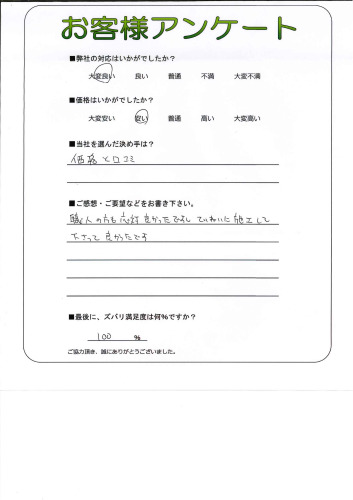 お客様アンケート
■弊社の対応はいかがでしたか?
大変良い 良い 普通 不満 大変不満
■価格はいかがでしたか?
大変安い 安い 普通 高い 大変高い
■当社を選んだ決め手は?
価格と口コミ
■ご感想・ご要望などをお書き下さい。
職人の方も応対良かったですし ていねいに施工して
下さって良かったです
■最後に、ズバリ満足度は何%ですか?
100 %
ご協力頂き、誠にありがとうございました。